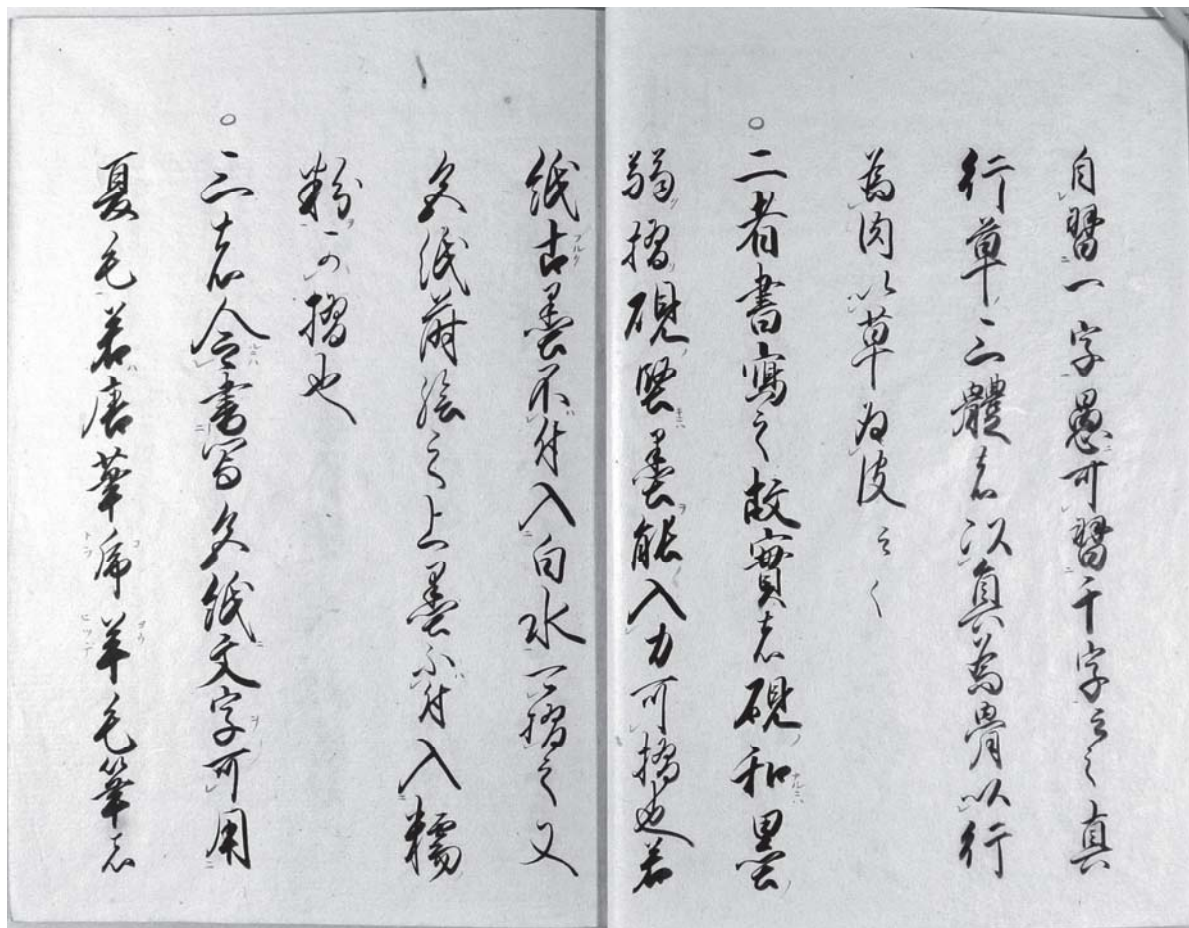 自習一字愚可習千字云々真
行草三體者以真為骨以行
為肉以草為皮云々
○二者書寫之故實者硯和墨
弱摺硯堅墨能入力可摺也若
紙古墨不付入白水可摺之又
色紙薄絵之上墨不付入糯
粉可摺也
○三者令書写色紙文字可用
夏毛若唐華虎羊毛筆者